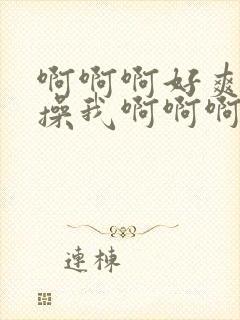 啊啊啊好爽
操我啊啊啊
连栋